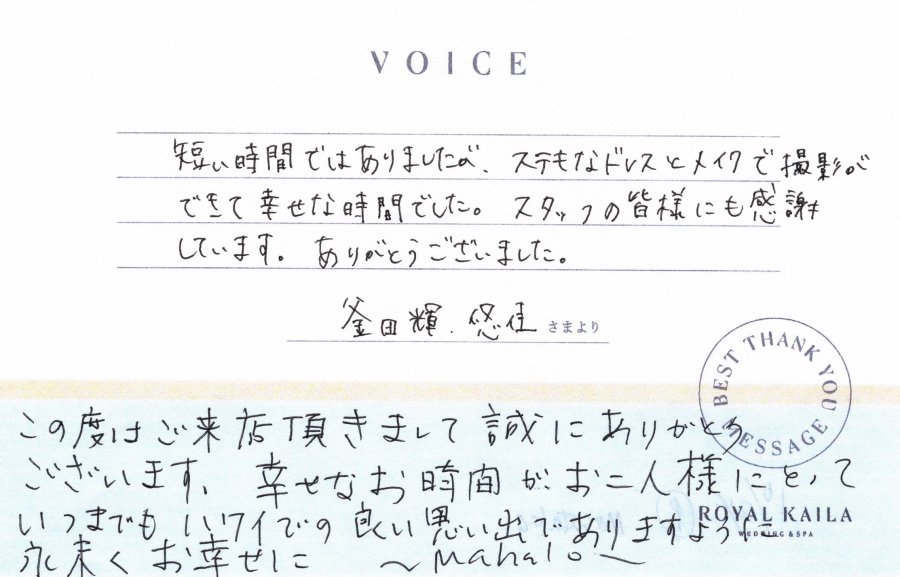 VOICE
短い時間ではありましたが、ステキなドレスとメイクで撮影が
できて幸せな時間でした。スタッフの皆様にも感謝
しています。ありがとうございました。
釜田輝.悠佳 さまより
BEST THANK YOU MESSAGE
この度はご来店頂きまして誠にありがとう
ございます、幸せなお時間が、お二人様にとって
いつまでもハワイでの良い思い出でありますように
ROYAL KAILA
WEDDING & SPA
永末くお幸せに 〜Mahalo〜